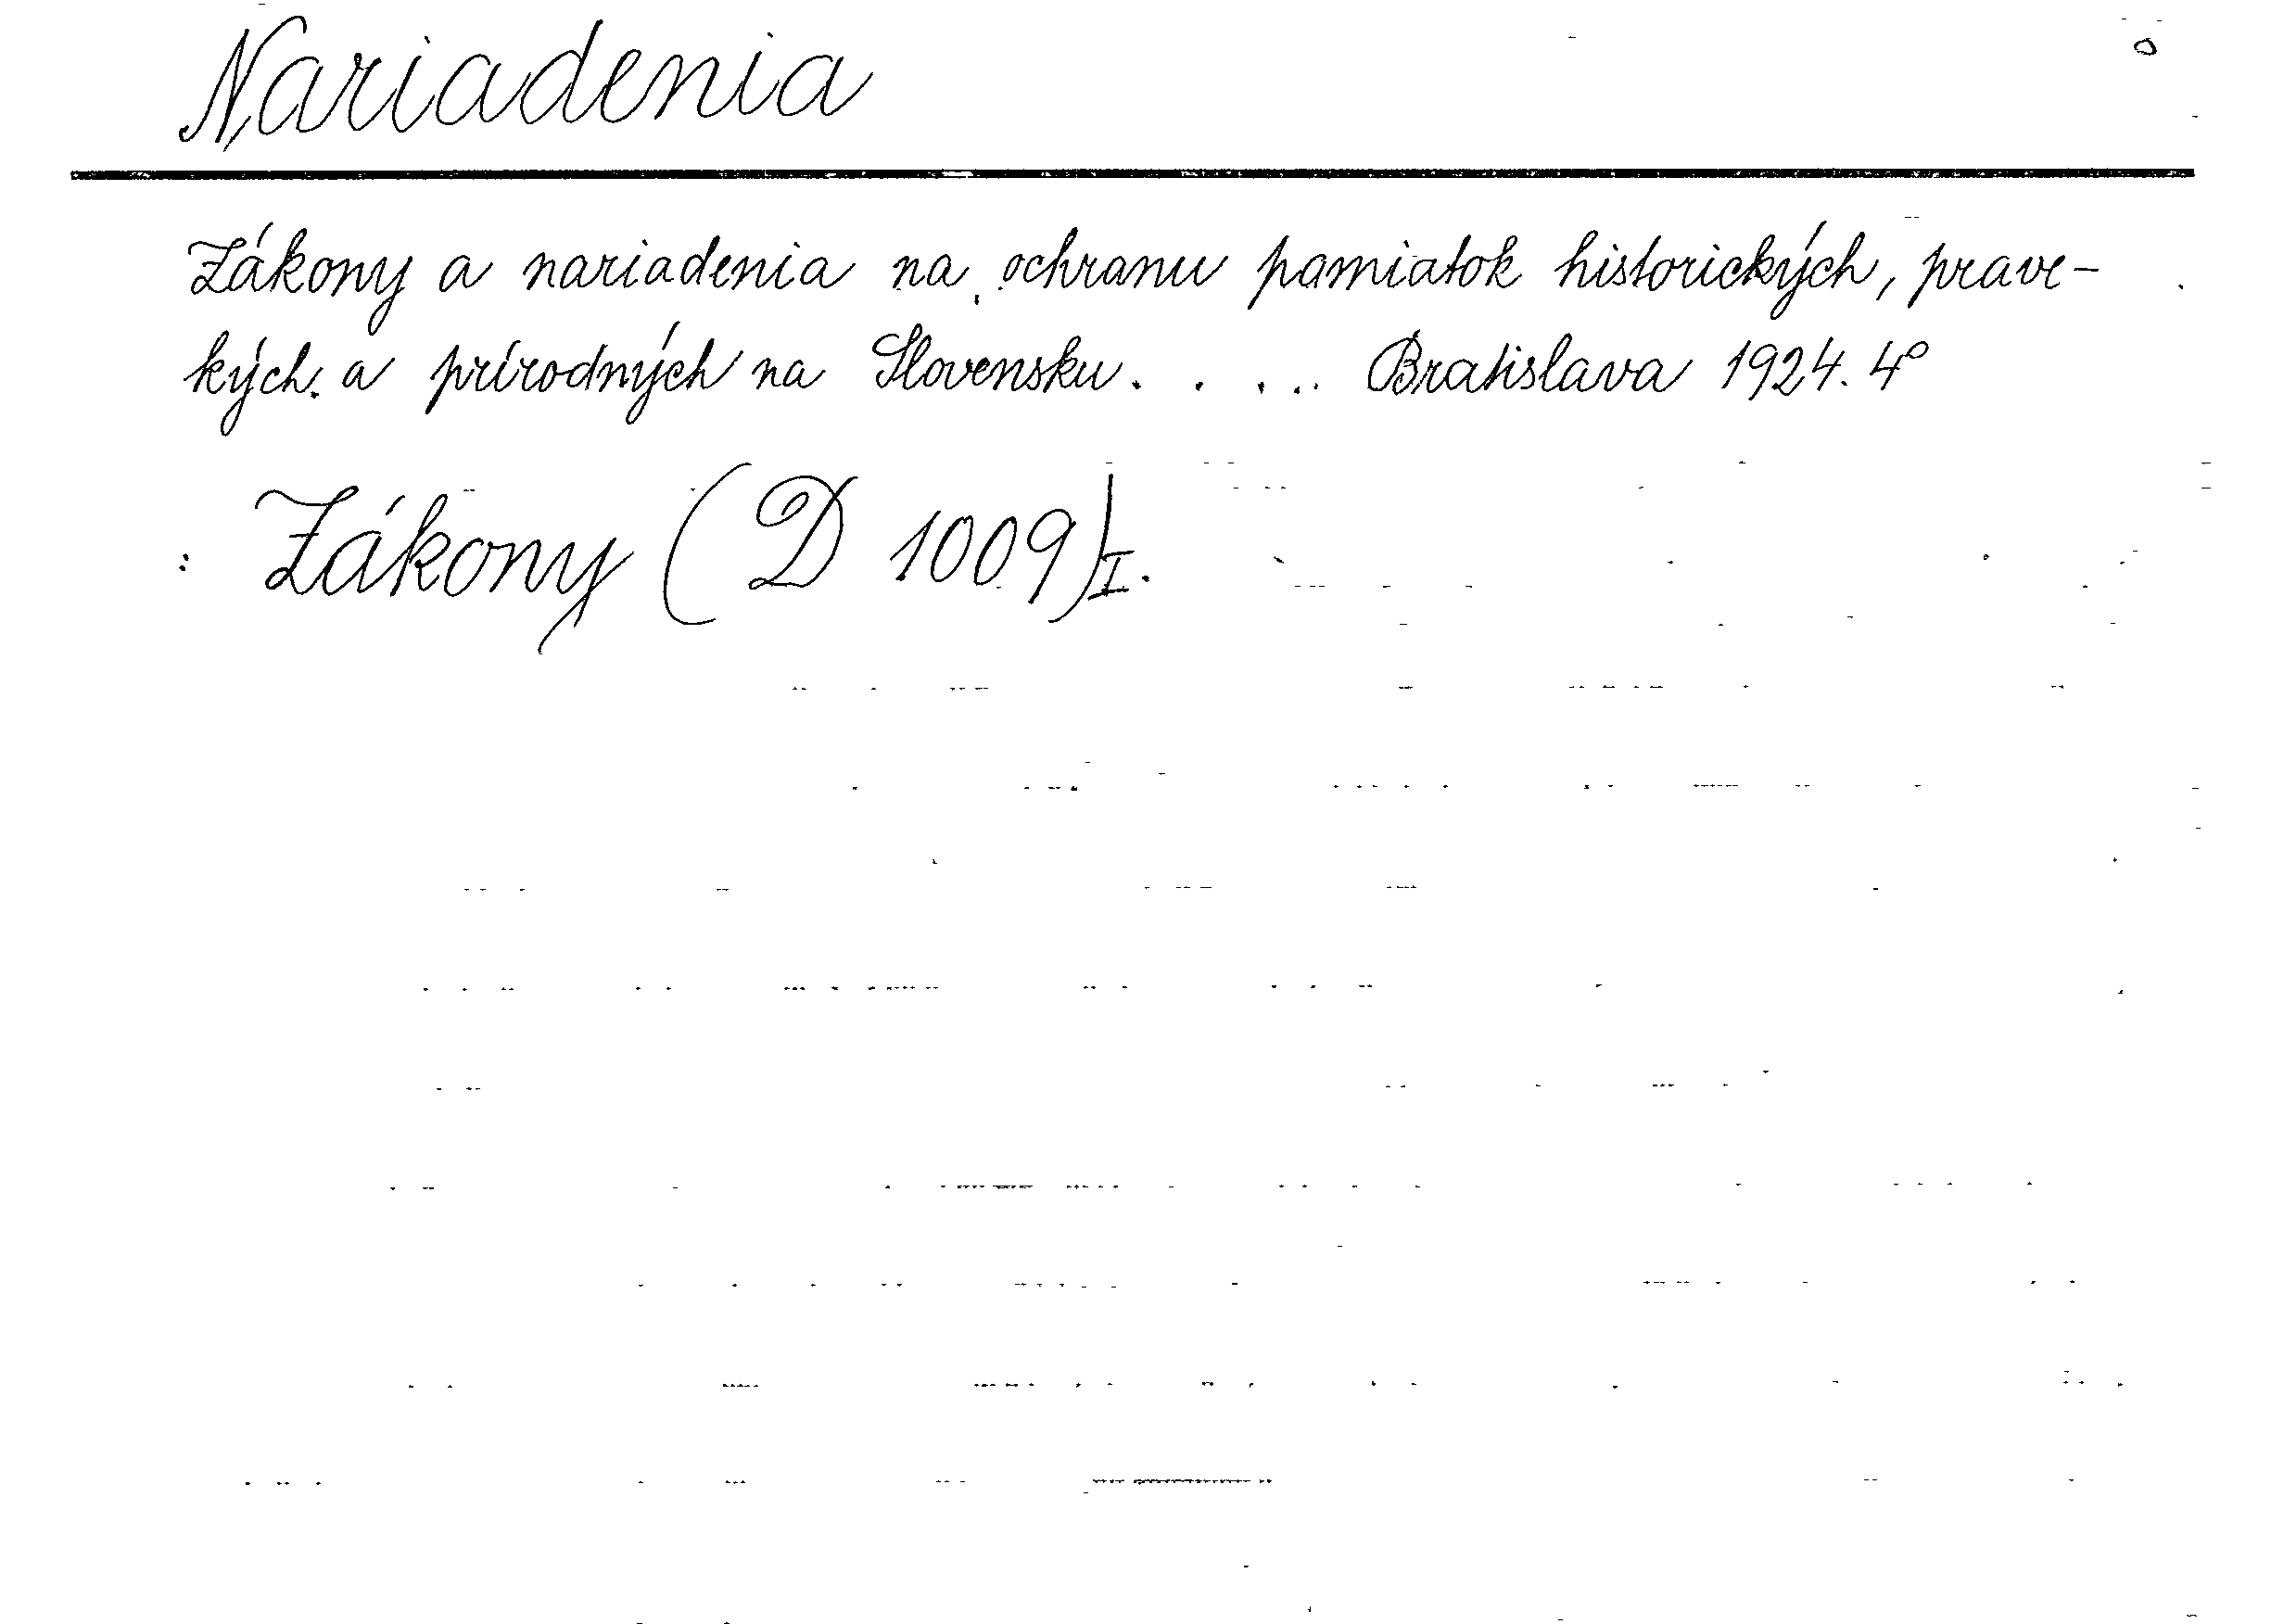 Nariadenia
Zákony a nariadenia na ochranu pamiatok historických, prave-
kých a prírodných na Slovensku. . . .. Bratislava 1924. 4°
: Zákony (D 1009)I.